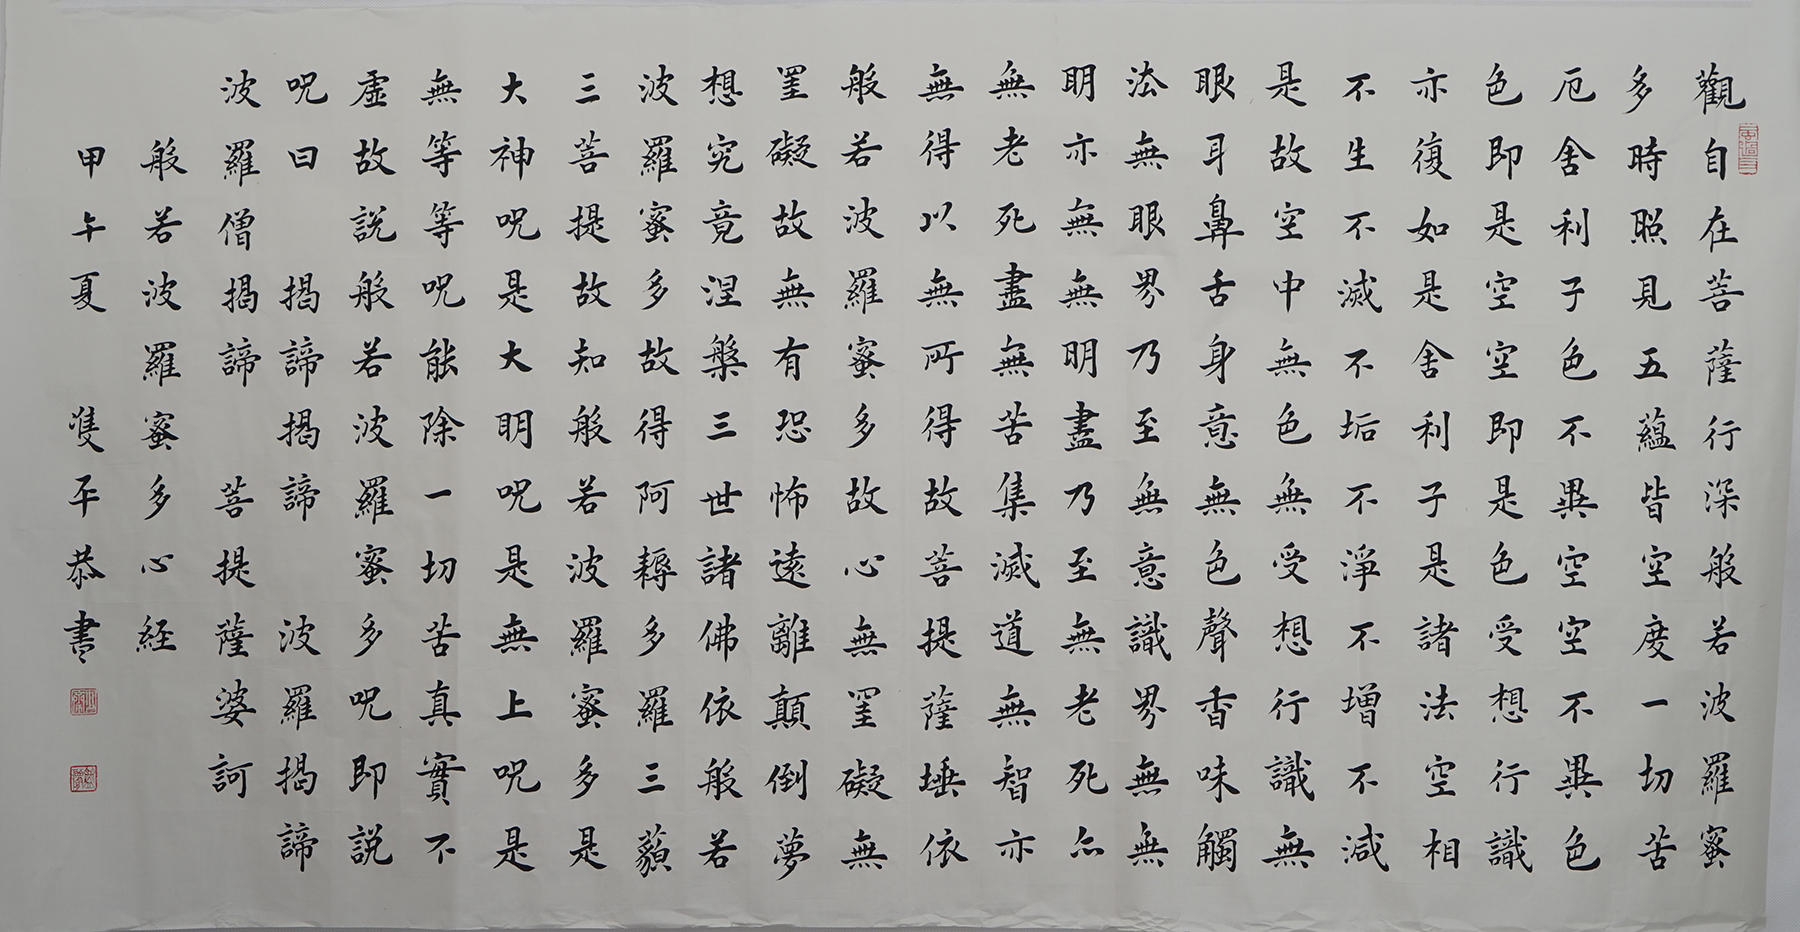 觀自在菩薩行深般若波羅蜜
多時照見五蘊皆空度一切苦
厄舍利子色不異空空不異色
色即是空空即是色受想行識
亦復如是舍利子是諸法空相
不生不滅不垢不淨不增不減
是故空中無色無受想行識無
眼耳鼻舌身意無色聲香味觸
法無眼界乃至無意識界無無
明亦無無明盡乃至無老死亦
無老死盡無苦集滅道無智亦
無得以無所得故菩提薩埵依
般若波羅蜜多故心無罣礙無
罣礙故無有恐怖遠離顛倒夢
想究竟涅槃三世諸佛依般若
波羅蜜多故得阿耨多羅三藐
三菩提故知般若波羅蜜多是
大神咒是大明咒是無上咒是
無等等咒能除一切苦真實不
虛故說般若波羅蜜多咒即說
咒曰 揭諦揭諦 波羅揭諦
波羅僧揭諦 菩提薩婆訶
般若波羅蜜多心経
甲午夏 雙平恭書